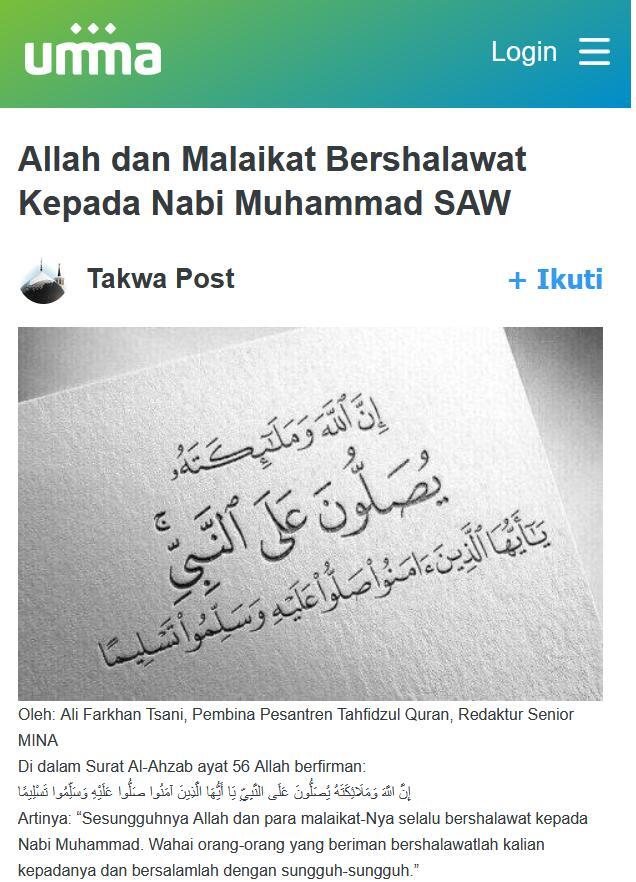 umma
Login
Allah dan Malaikat Bershalawat
Kepada Nabi Muhammad SAW
Takwa Post
+ Ikuti
إِنَّ ٱللَّهَ وَمَلَـٰٓئِكَتَهُۥ
يُصَلُّونَ عَلَى ٱلنَّبِىِّ ۚ
يَـٰٓأَيُّهَا ٱلَّذِينَ ءَامَنُوا۟ صَلُّوا۟ عَلَيْهِ وَسَلِّمُوا۟ تَسْلِيمًا
Oleh: Ali Farkhan Tsani, Pembina Pesantren Tahfidzul Quran, Redaktur Senior
MINA
Di dalam Surat Al-Ahzab ayat 56 Allah berfirman:
إِنَّ اللَّهَ وَمَلَائِكَتَهُ يُصَلُّونَ عَلَى النَّبِيِّ يَا أَيُّهَا الَّذِينَ آمَنُوا صَلُّوا عَلَيْهِ وَسَلِّمُوا تَسْلِيمًا
Artinya: “Sesungguhnya Allah dan para malaikat-Nya selalu bershalawat kepada
Nabi Muhammad. Wahai orang-orang yang beriman bershalawatlah kalian
kepadanya dan bersalamlah dengan sungguh-sungguh.”